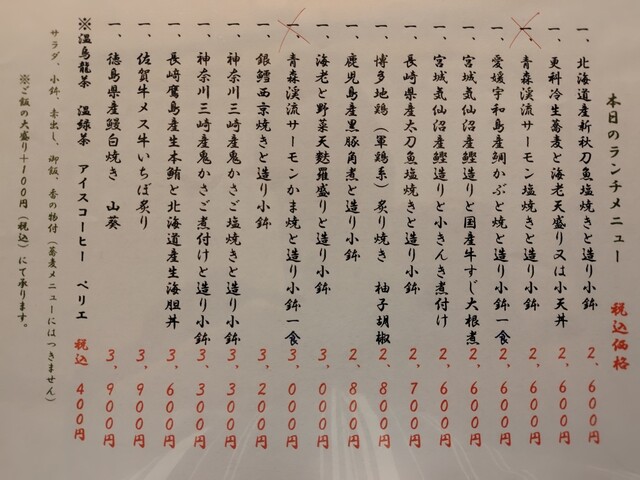 本日のランチメニュー 税込価格
一、北海道産新秋刀魚塩焼きと造り小鉢 2,600円
一、更科冷生蕎麦と海老天盛り又は小天丼 2,600円
一、青森渓流サーモン塩焼きと造り小鉢 2,600円
一、愛媛宇和島産鯛かぶと焼と造り小鉢一食 2,600円
一、宮城気仙沼産鰹造りと国産牛すじ大根煮 2,600円
一、宮城気仙沼産鰹造りと小きんき煮付け 2,600円
一、長崎県産太刀魚塩焼きと造り小鉢 2,700円
一、博多地鶏(軍鶏系)炙り焼き 柚子胡椒 2,800円
一、鹿児島産黒豚角煮と造り小鉢 2,800円
一、海老と野菜天麩羅盛りと造り小鉢 3,000円
一、青森渓流サーモンかま焼と造り小鉢一食 3,000円
一、銀鱈西京焼きと造り小鉢 3,200円
一、神奈川三崎産鬼かさご塩焼きと造り小鉢 3,300円
一、神奈川三崎産鬼かさご煮付けと造り小鉢 3,300円
一、長崎鷹島産生本鮪と北海道産生海胆丼 3,600円
一、佐賀牛メス牛いちぼ炙り 3,900円
一、徳島県産鰻白焼き 山葵 3,900円
※温烏龍茶 温緑茶 アイスコーヒー ペリエ 税込 400円
サラダ、小鉢、赤出し、御飯、香の物付(蕎麦メニューにはつきません)
※ご飯の大盛り+100円(税込)にて承ります。